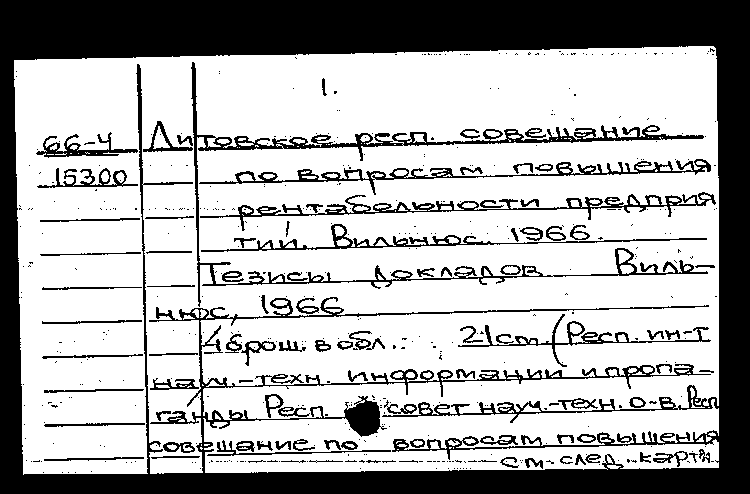 1.
66-4 Литовское респ. совещание
15300 по вопросам повышения
рентабельности предприя
тий. Вильнюс. 1966.
Тезисы докладов Виль-
нюс, 1966
4 брош. в обл.: 21 cm (Респ. ин-т
науч.-техн. информации и пропа-
ганды Респ. совет науч.-техн. о-в. Респ
совещание по вопросам повышения
см. след. карт.